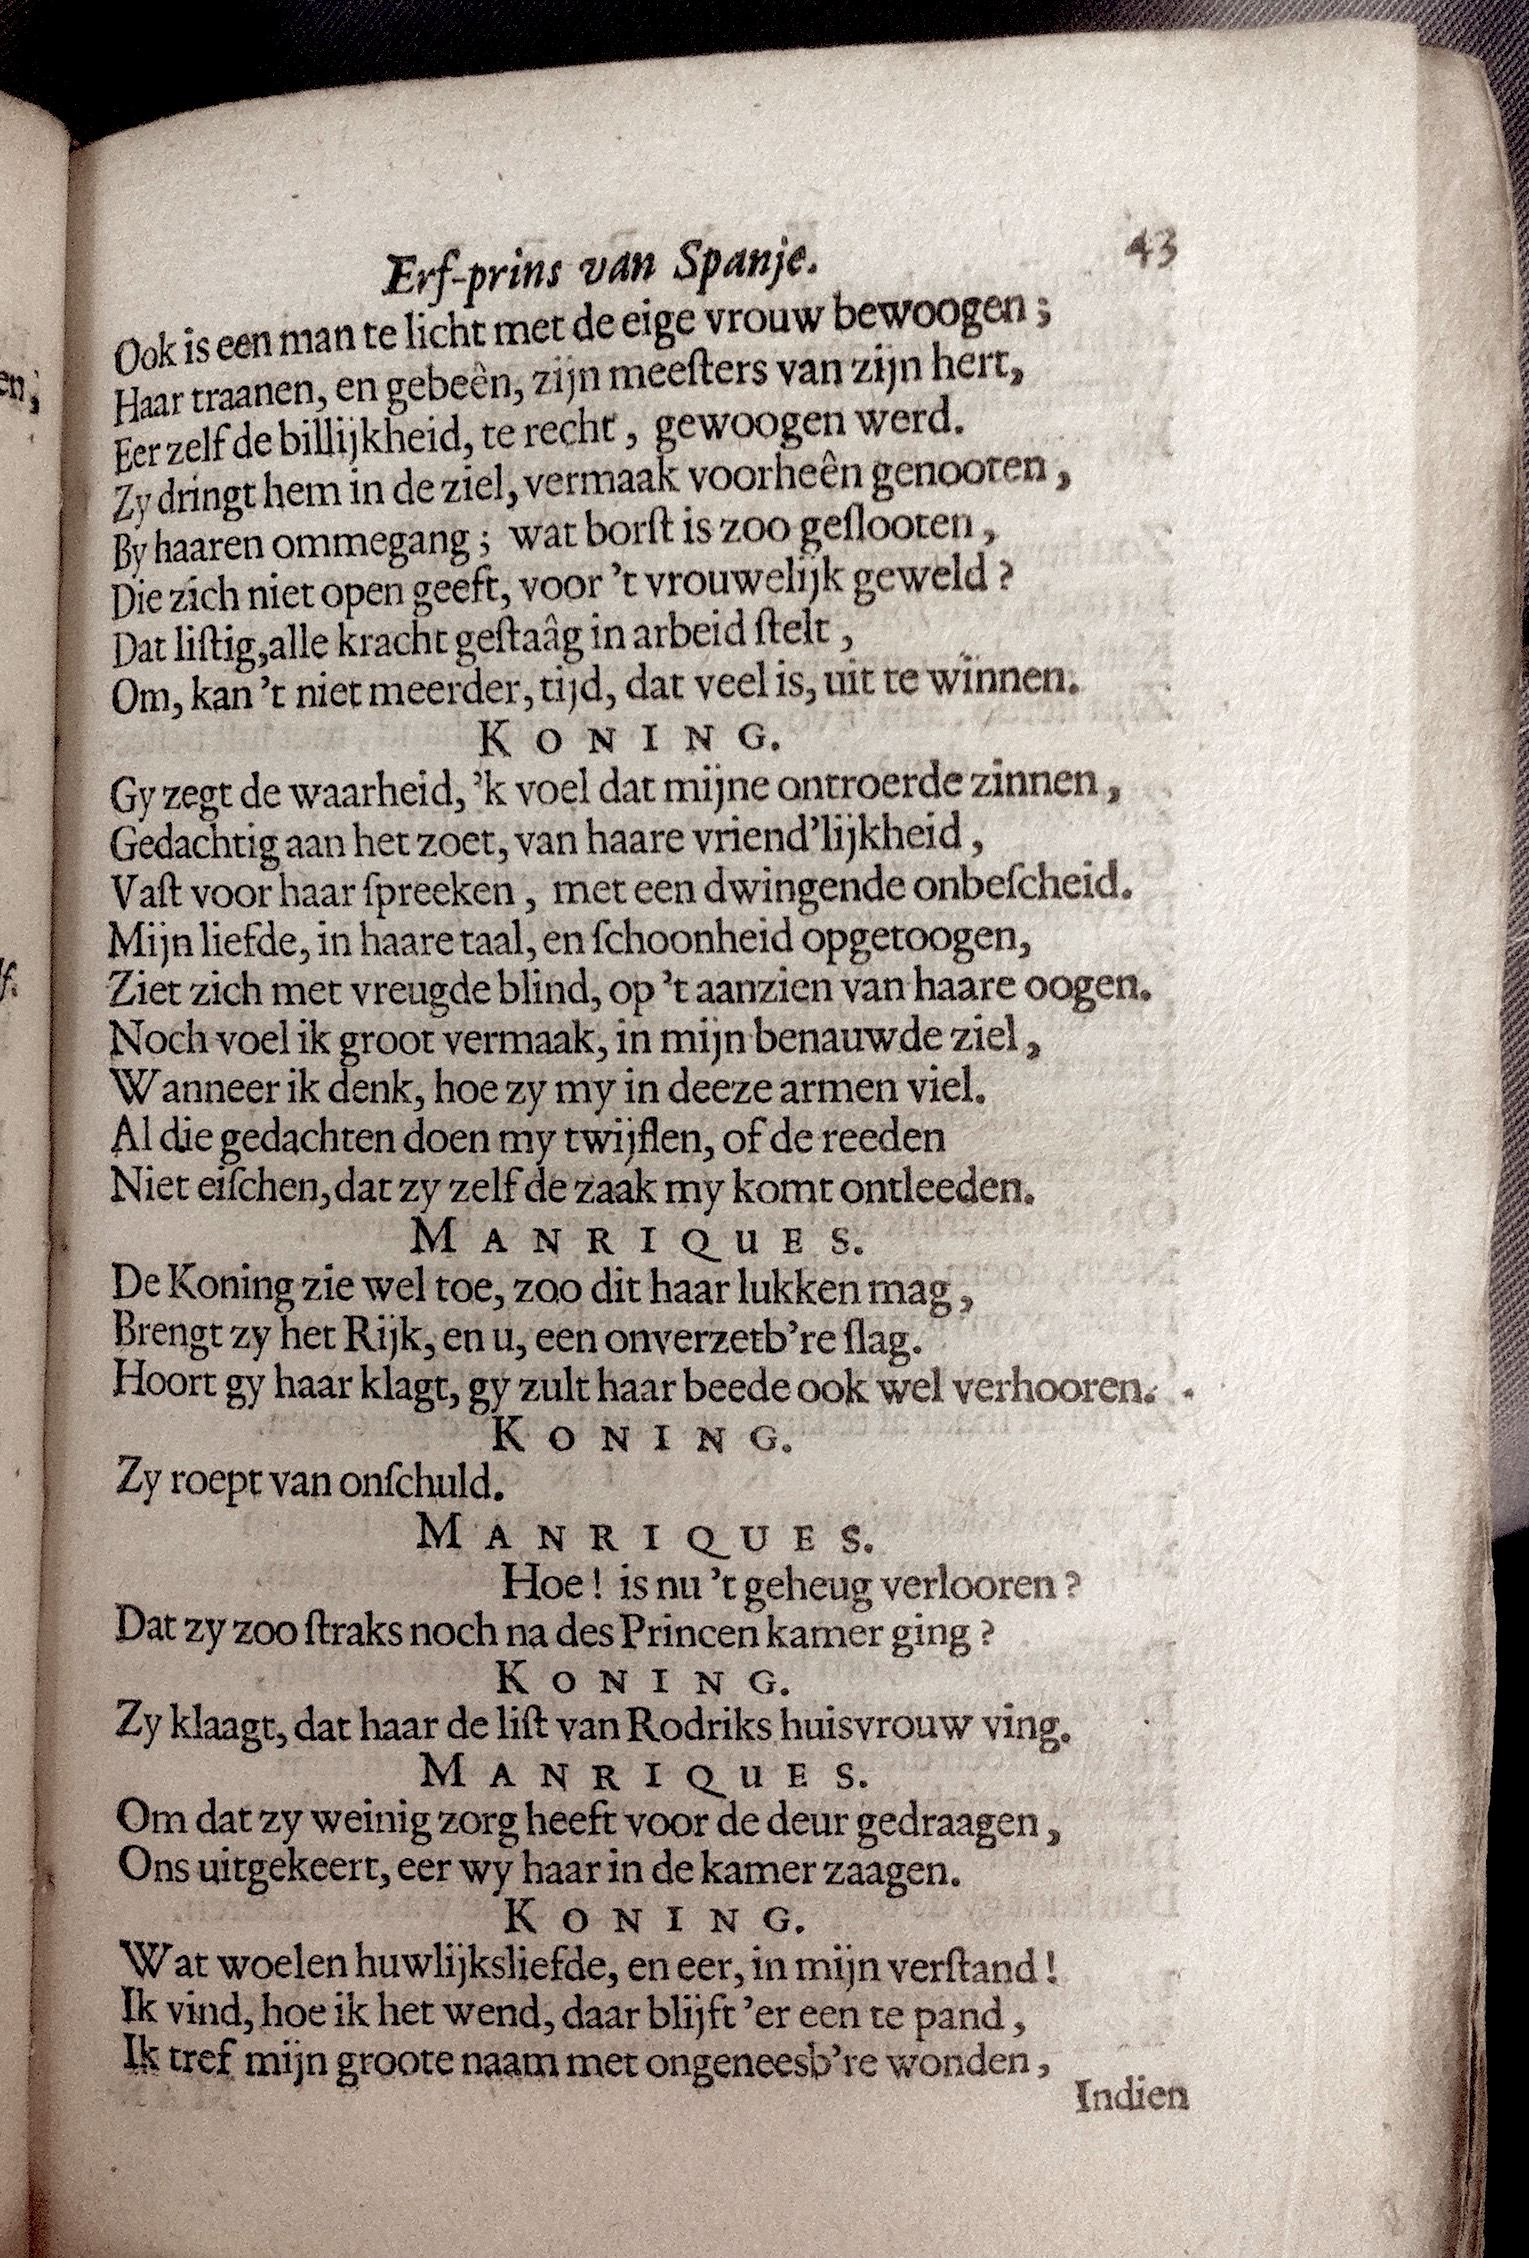 Erf-prins van Spanje. 43
Ook is een man te licht met de eige vrouw bewoogen;
Haar traanen, en gebeên, zijn meeſters van zijn hert,
Eer zelf de billijkheid, te recht, gewoogen werd.
Zy dringt hem in de ziel, vermaak voorheên genooten,
By haaren ommegang; wat borſt is zoo geſlooten,
Die zich niet open geeft, voor 't vrouwelijk geweld?
Dat liſtig, alle kracht geſtaâg in arbeid ſtelt,
Om, kan 't niet meerder, tijd, dat veel is, uit te winnen.
KONING.
Gy zegt de waarheid, 'k voel dat mijne ontroerde zinnen,
Gedachtig aan het zoet, van haare vriend'lijkheid,
Vaſt voor haar ſpreeken, met een dwingende onbeſcheid.
Mijn liefde, in haare taal, en ſchoonheid opgetoogen,
Ziet zich met vreugde blind, op 't aanzien van haare oogen.
Noch voel ik groot vermaak, in mijn benauwde ziel,
Wanneer ik denk, hoe zy my in deeze armen viel.
Al die gedachten doen my twijflen, of de reeden
Niet eiſchen, dat zy zelf de zaak my komt ontleeden.
MANRIQuES.
De Koning zie wel toe, zoo dit haar lukken mag,
Brengt zy het Rijk, en u, een onverzetb're ſlag.
Hoort gy haar klagt, gy zult haar beede ook wel verhooren.
KONING.
Zy roept van onſchuld.
MANRIQUES.
Hoe! is nu 't geheug verlooren?
Dat zy zoo ſtraks noch na des Princen kamer ging?
KONING.
Zy klaagt, dat haar de liſt van Rodriks huisvrouw ving.
MANRIQuES.
Om dat zy weinig zorg heeft voor de deur gedraagen,
Ons uitgekeert, eer wy haar in de kamer zaagen.
KONING.
Wat woelen huwlijksliefde, en eer, in mijn verſtand!
Ik vind, hoe ik het wend, daar blijft 'er een te pand,
Ik tref mijn groote naam met ongeneesb're wonden,
Indien